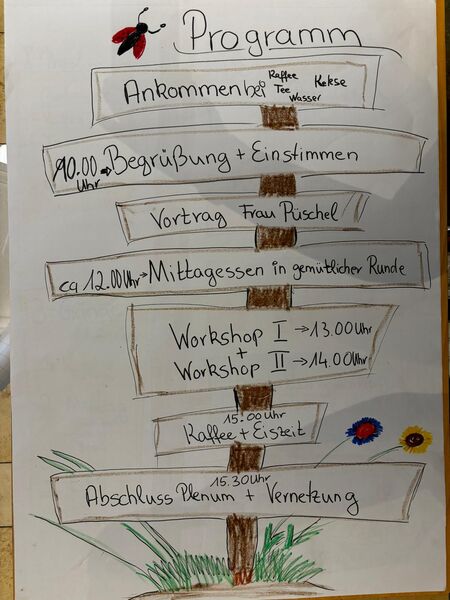 Programm
Ankommen bei Kaffee Tee Wasser Kekse
10.00 Uhr → Begrüßung + Einstimmen
Vortrag Frau Püschel
ca 12.00 Uhr → Mittagessen in gemütlicher Runde
Workshop I → 13.00 Uhr
+
Workshop II → 14.00 Uhr
15.00 Uhr
Kaffee + Eiszeit
15.30 Uhr
Abschluss Plenum + Vernetzung